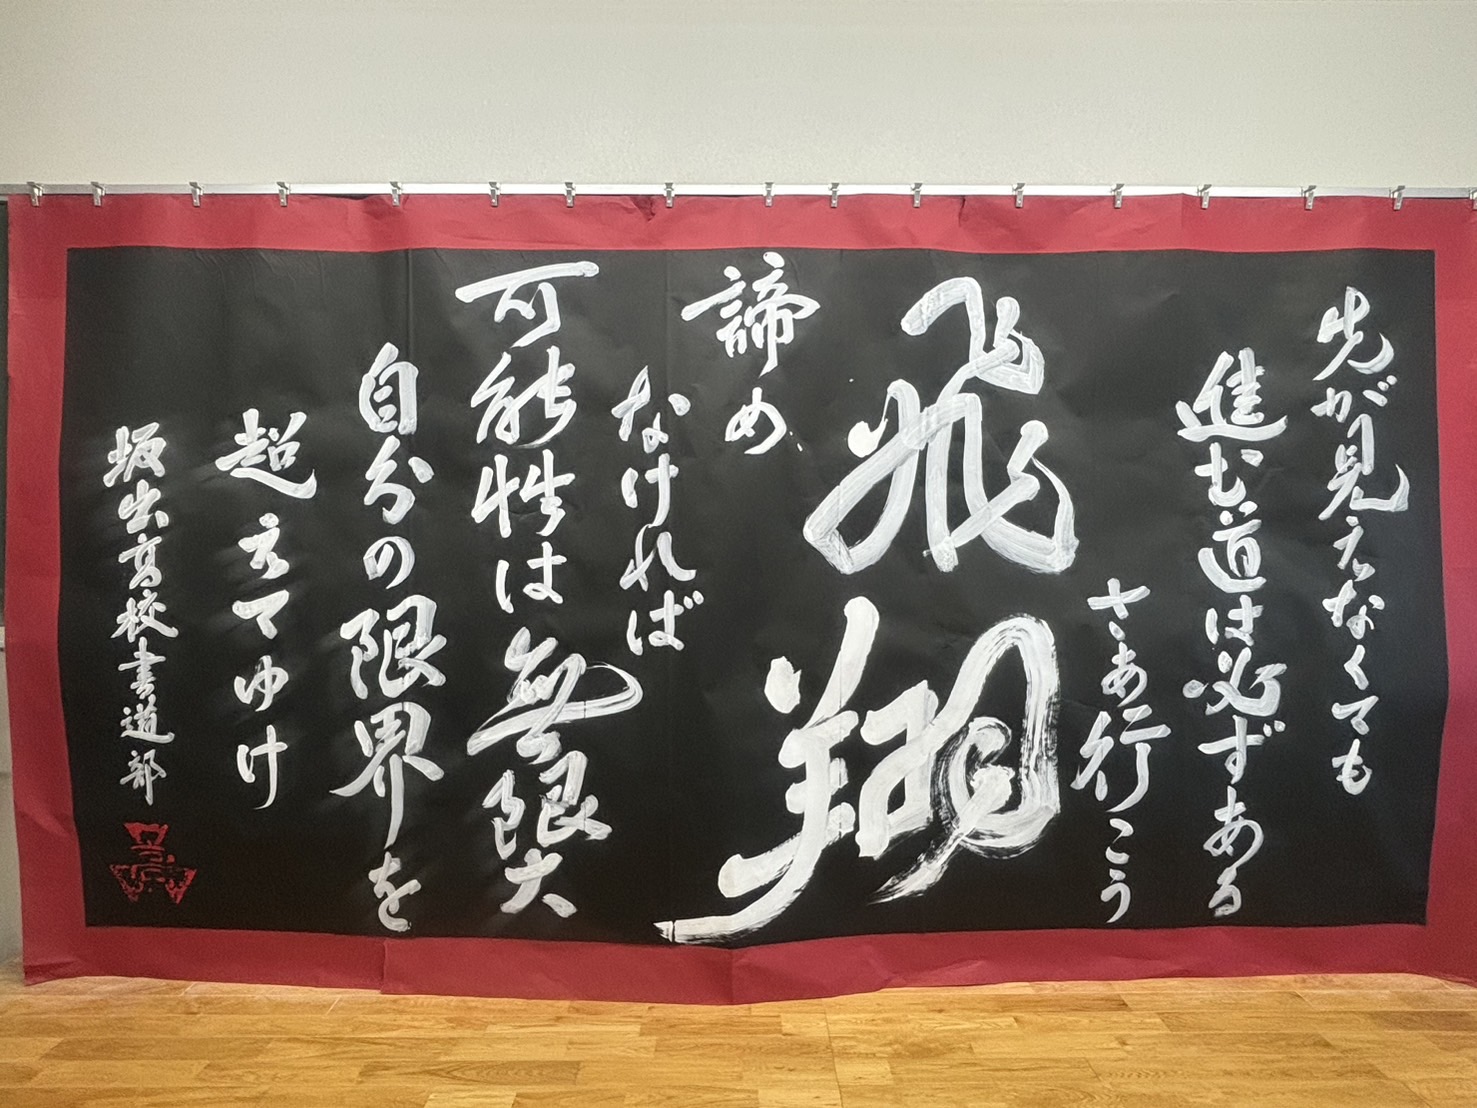 先が見えなくても
進む道は必ずある
さあ行こう
飛翔
諦め
なければ
可能性は無限大
自分の限界を
超えてゆけ
坂出高校書道部